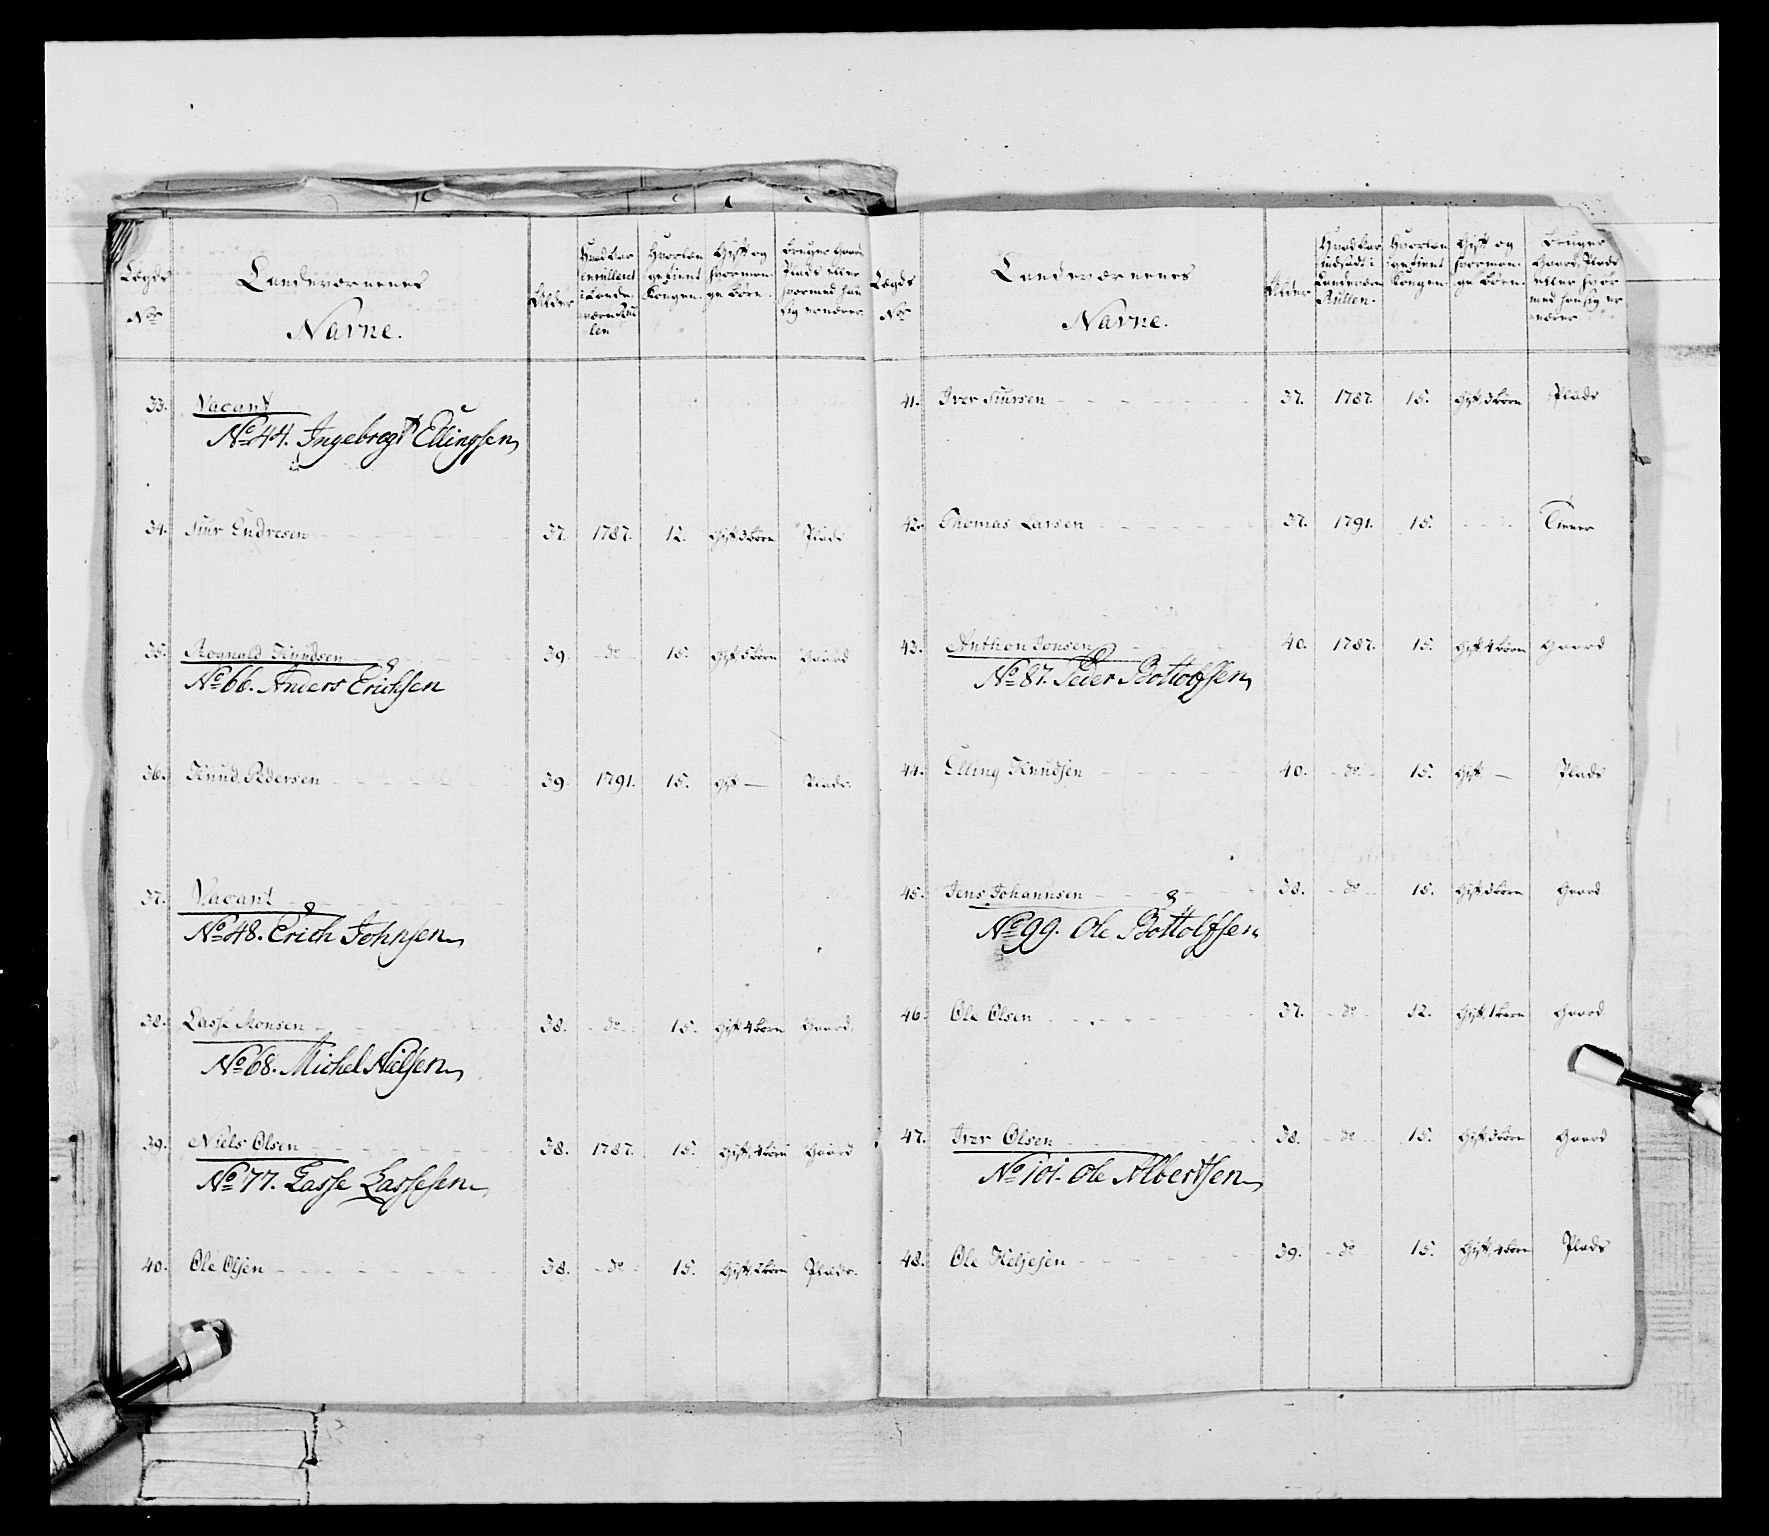 Lægds No
Landeværnenes
Navne.
Alder
Hvorlæn-
ge tient
Kongen.
Gift og
hvorman-
ge Børn.
33. Vacant
No 44. Ingebregt Ellingsen
34. Siur Endresen 37. 1787. 12. Gift 3 børn Plads
35. Rognald Knudsen 39. do 15. Gift 5 børn Gaard
No 66. Anders Erichsen
36. Knud Pedersen 39. 1791. 15. Gift — Plads.
37. Vacant
No 48. Erich Johnsen
38. Lasse Monsen 38. do 15. Gift 4 børn Gaard.
No 68. Michel Nielsen
39. Niels Olsen 38. 1787. 15. Gift, 4 børn Gaard
No 77. Lasse Lassesen
40. Ole Olsen 38. do 15. Gift, 2 børn Plads.
Lægds No
Landeværnenes
Navne.
Alder
Hvorlæn-
ge tient
Kongen
Gift og
hvorman-
ge Børn.
Bruger
Gaard, Plads
eller hvor-
med han sig er-
nærer
41. Iver Siursen 37. 1787. 15. Gift, 3 børn Plads
42. Thomas Larsen 37. 1791. 15. Tiener
43. Anthon Jonsen 40. 1787. 15. Gift 4 børn Gaard
No 87. Peder Bottolfsen
44. Elling Knudsen 40. do 15. Gift — Plads
45. Jens Johannsen 38. do 15. Gift 3 børn Gaard
No 99. Ole Bottolfsen
46. Ole Olsen 37. do 12. Gift, 1 børn Gaard
47. Iver Olsen 38. do 15. Gift 3 børn Gaard
No 101. Ole Albertsen
48. Ole Heljesen 39. do 15. Gift, 4 børn Plads